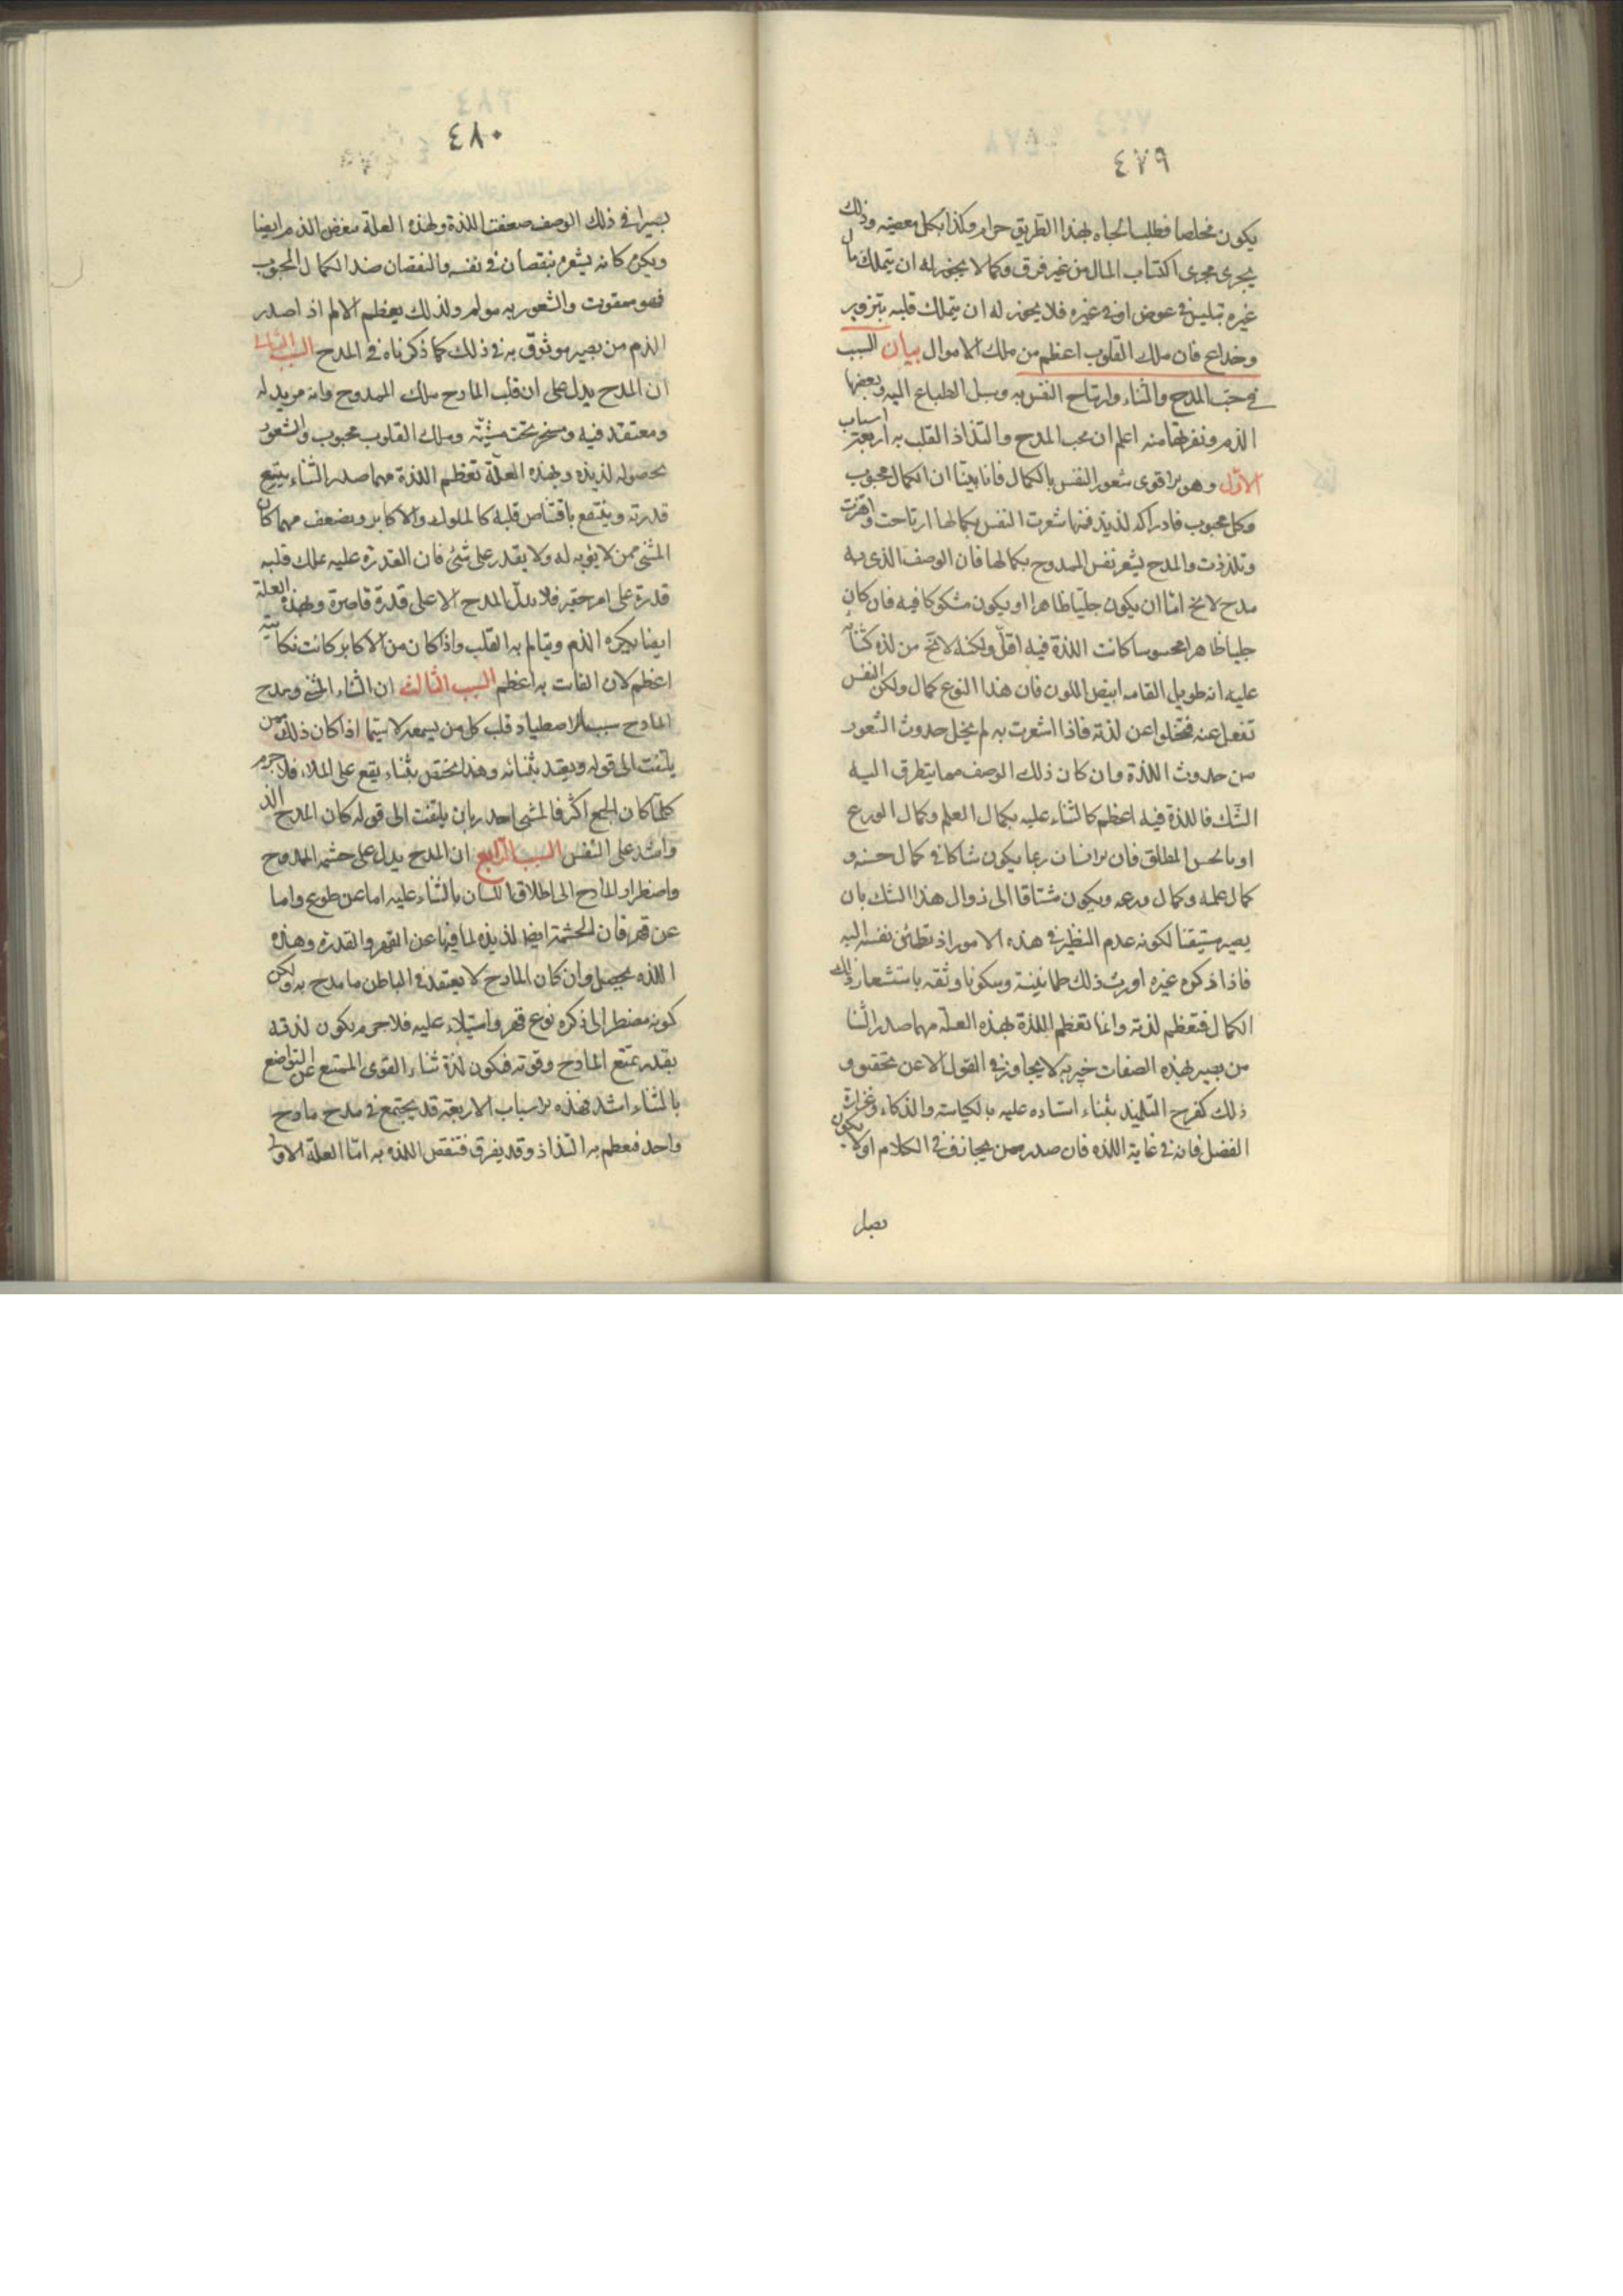 ٤٧٩
يكون مخلصا فطلب الجاه بهذا الطريق حرام وكذا بكل معصية وذلك
يجرى مجرى اكتساب المال من غير فرق وكما لا يجوز له ان يتملك مال
غيره بتلبيس فى عوض او فى غيره فلا يجوز له ان يتملك قلبه بتزوير
وخداع فان ملك القلوب اعظم من ملك الاموال بيان السبب
فى حب المدح والثناء وارتياح النفس به وميل الطباع اليه وبعضها
الذم ونفرتها منه اعلم ان محب المدح والتذاذ القلب به اربعة اسباب
الاوّل وهو الاقوى شعور النفس بالكمال فانا بيّنا ان الكمال محبوب
وكل محبوب فادراكه لذيذ فمهما شعرت النفس بكمالها ارتاحت واهتزت
وتلذذت والمدح يشعر نفس الممدوح بكمالها فان الوصف الذى به
مدح لا يخ امّا ان يكون جليّا ظاهرا او يكون مشكوكا فيه فان كان
جليا ظاهرا محسوسا كانت اللذة فيه اقلّ ولكنه لا يخ من لذه كثنائه
عليه انه طويل القامه ابيض اللون فان هذا النوع كمال ولكن النفس
تغفل عنه فتخلوا عن لذته فاذا اشعرت به لم يخل حدوث الشعور
من حدوث اللذة وان كان ذلك الوصف مما يتطرق اليه
الشك فاللذة فيه اعظم كالثناء عليه بكمال العلم وكمال الورع
او بالحسن المطلق فان الانسان ربما يكون شاكا فى كمال حسنه و
كمال علمه وكمال ورعه ويكون مشتاقا الى زوال هذا الشك بان
يصير مستيقنا لكونه عدم النظير فى هذه الامور اذ تطمئن نفسه اليه
فاذا ذكره غيره اورث ذلك طمانينة وسكونا وثقه باستشعار ذلك
الكمال فتعظم لذته وانما تعظم اللذة بهذه العلّة مهما صدر الثنا
من بصير بهذه الصفات خبير به لا يجاوز فى القول الا عن تحقيق و
ذلك كفرح التلميذ بثناء استاده عليه بالكياسة والذكاء وغزارة
الفضل فانه فى غاية اللذه فان صدر ممن يجازف فى الكلام او لا يكون
بصيرا
٤٨٠
بصيرا فى ذلك الوصف ضعفت اللذة ولهذه العلة يبغض الذم ايضا
ويكره كانه يشعره بنقصان فى نفسه والنقصان ضد الكمال المحبوب
فهو ممقوت والشعور به مولم ولذلك يعظم الالم اذا صدر
الذم من بصير موثوق به فى ذلك كما ذكرناه فى المدح السبب الثانى
ان المدح يدل على ان قلب المادح ملك الممدوح وانه مريد له
ومعتقد فيه ومسخر تحت مشيّته وملك القلوب محبوب والشعور
بحصوله لذيذه وبهذه العلّة تعظم اللذة مهما صدر الثناء يتسع
قدرته وينتفع باقتناص قلبه كالملوك والاكابر ويضعف مهما كان
المثنى ممن لا يؤبه له ولا يقدر على شئ فان القدرة عليه بملك قلبه
قدرة على امر حقير فلا يدلّ المدح الا على قدرة قاصرة وبهذه العلة
ايضا يكره الذم ويتالم به القلب واذا كان من الاكابر كانت نكايته
اعظم لان الفائت به اعظم السبب الثالث ان الثناء المثنى ومدح
المادح سبب لاصطياد قلب كل من يسمعه لا سيّما اذا كان ذلك ممن
يلتفت الى قوله ويعتد بثنائه وهذا يختص بثناء يقع على الملاء فلا جرم
كلّما كان الجمع اكثر فالمثنى اجدر بان يلتفت الى قوله كان المدح الذ
واشد على النفس السبب الرّابع ان المدح يدل على حشمه الممدوح
واضطرار المادح الى اطلاق اللسان بالثناء عليه اما عن طوع واما
عن قهر فان الحشمة ايضا لذيذه لما فيها عن القهر والقدرة وهذه
اللذه يحصل وان كان المادح لا يعتقد فى الباطن ما مدح به ولكن
كونه مضطر الى ذكره نوع قهر واستيلاء عليه فلا جرم يكون لذته
بقدر تمتع المادح وقوته فكون لذة ثناء القوى الممتنع عن التواضع
بالثناء اشد فهذه الاسباب الاربعة قد يجتمع فى مدح مادح
واحد فيعظم به التذاذ وقد يفرق فتنقص اللذه به امّا العلّة الاولى